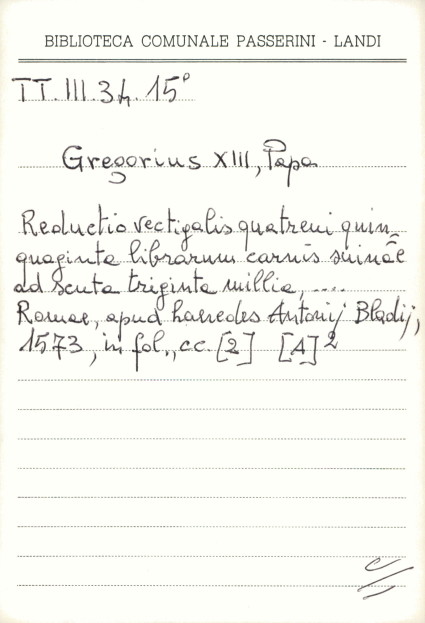 BIBLIOTECA COMUNALE PASSERINI - LANDI
TT.III.34.15°
Gregorius XIII, Papa
Reductio vectigalis quatreni quin_
quaginta librarum carnis suinae
ad scuta triginta millia, ....
Romae, apud haeredes Antonij Bladij,
1573, in fol., cc. [2] [A]²